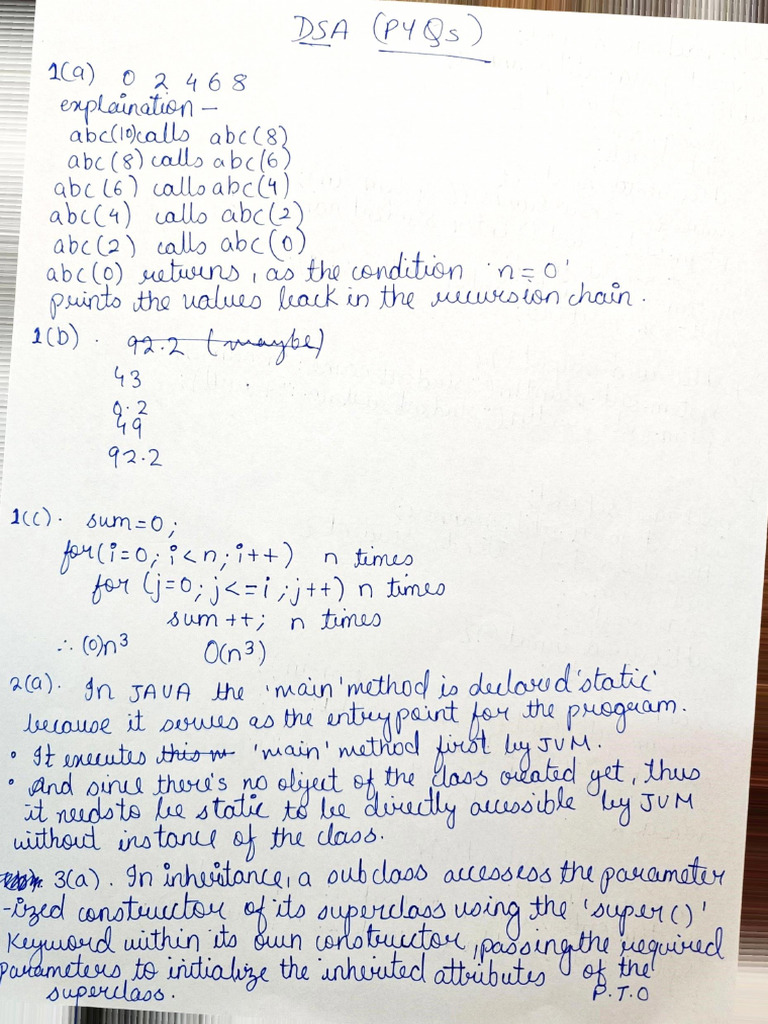 DSA (PYQs)
1(a) 0 2 4 6 8
explaination –
abc(10) calls abc(8)
abc(8) calls abc(6)
abc(6) calls abc(4)
abc(4) calls abc(2)
abc(2) calls abc(0)
abc(0) returns, as the condition 'n=0'
prints the values back in the recursion chain.
1(b). 92.2 (maybe)
43
0.2
49
92.2
1(c). sum=0;
for(i=0; i<n; i++) n times
for (j=0; j<=i; j++) n times
sum++; n times
∴ (0)n³ O(n³)
2(a). In JAVA the 'main' method is declared 'static'
because it serves as the entry point for the program.
• It executes this 'main' method first by JVM.
• And since there's no object of the class created yet, thus
it needs to be static to be directly accessible by JVM
without instance of the class.
3(a). In inheritance, a subclass accessess the parameter
-ized constructor of its superclass using the 'super()'
keyword within its own constructor, passing the required
parameters to initialize the inherited attributes of the
superclass. P.T.O